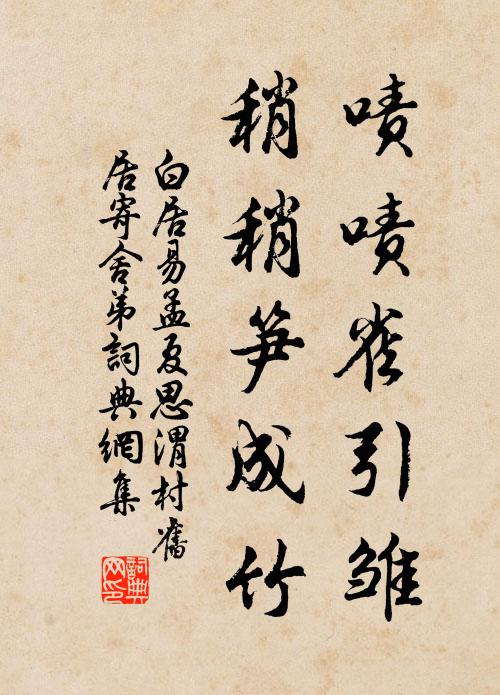 嘖嘖雀引雛
稍稍笋成竹
白居易孟夏思渭村舊
居寄舍弟詞典網集
詞典
网印